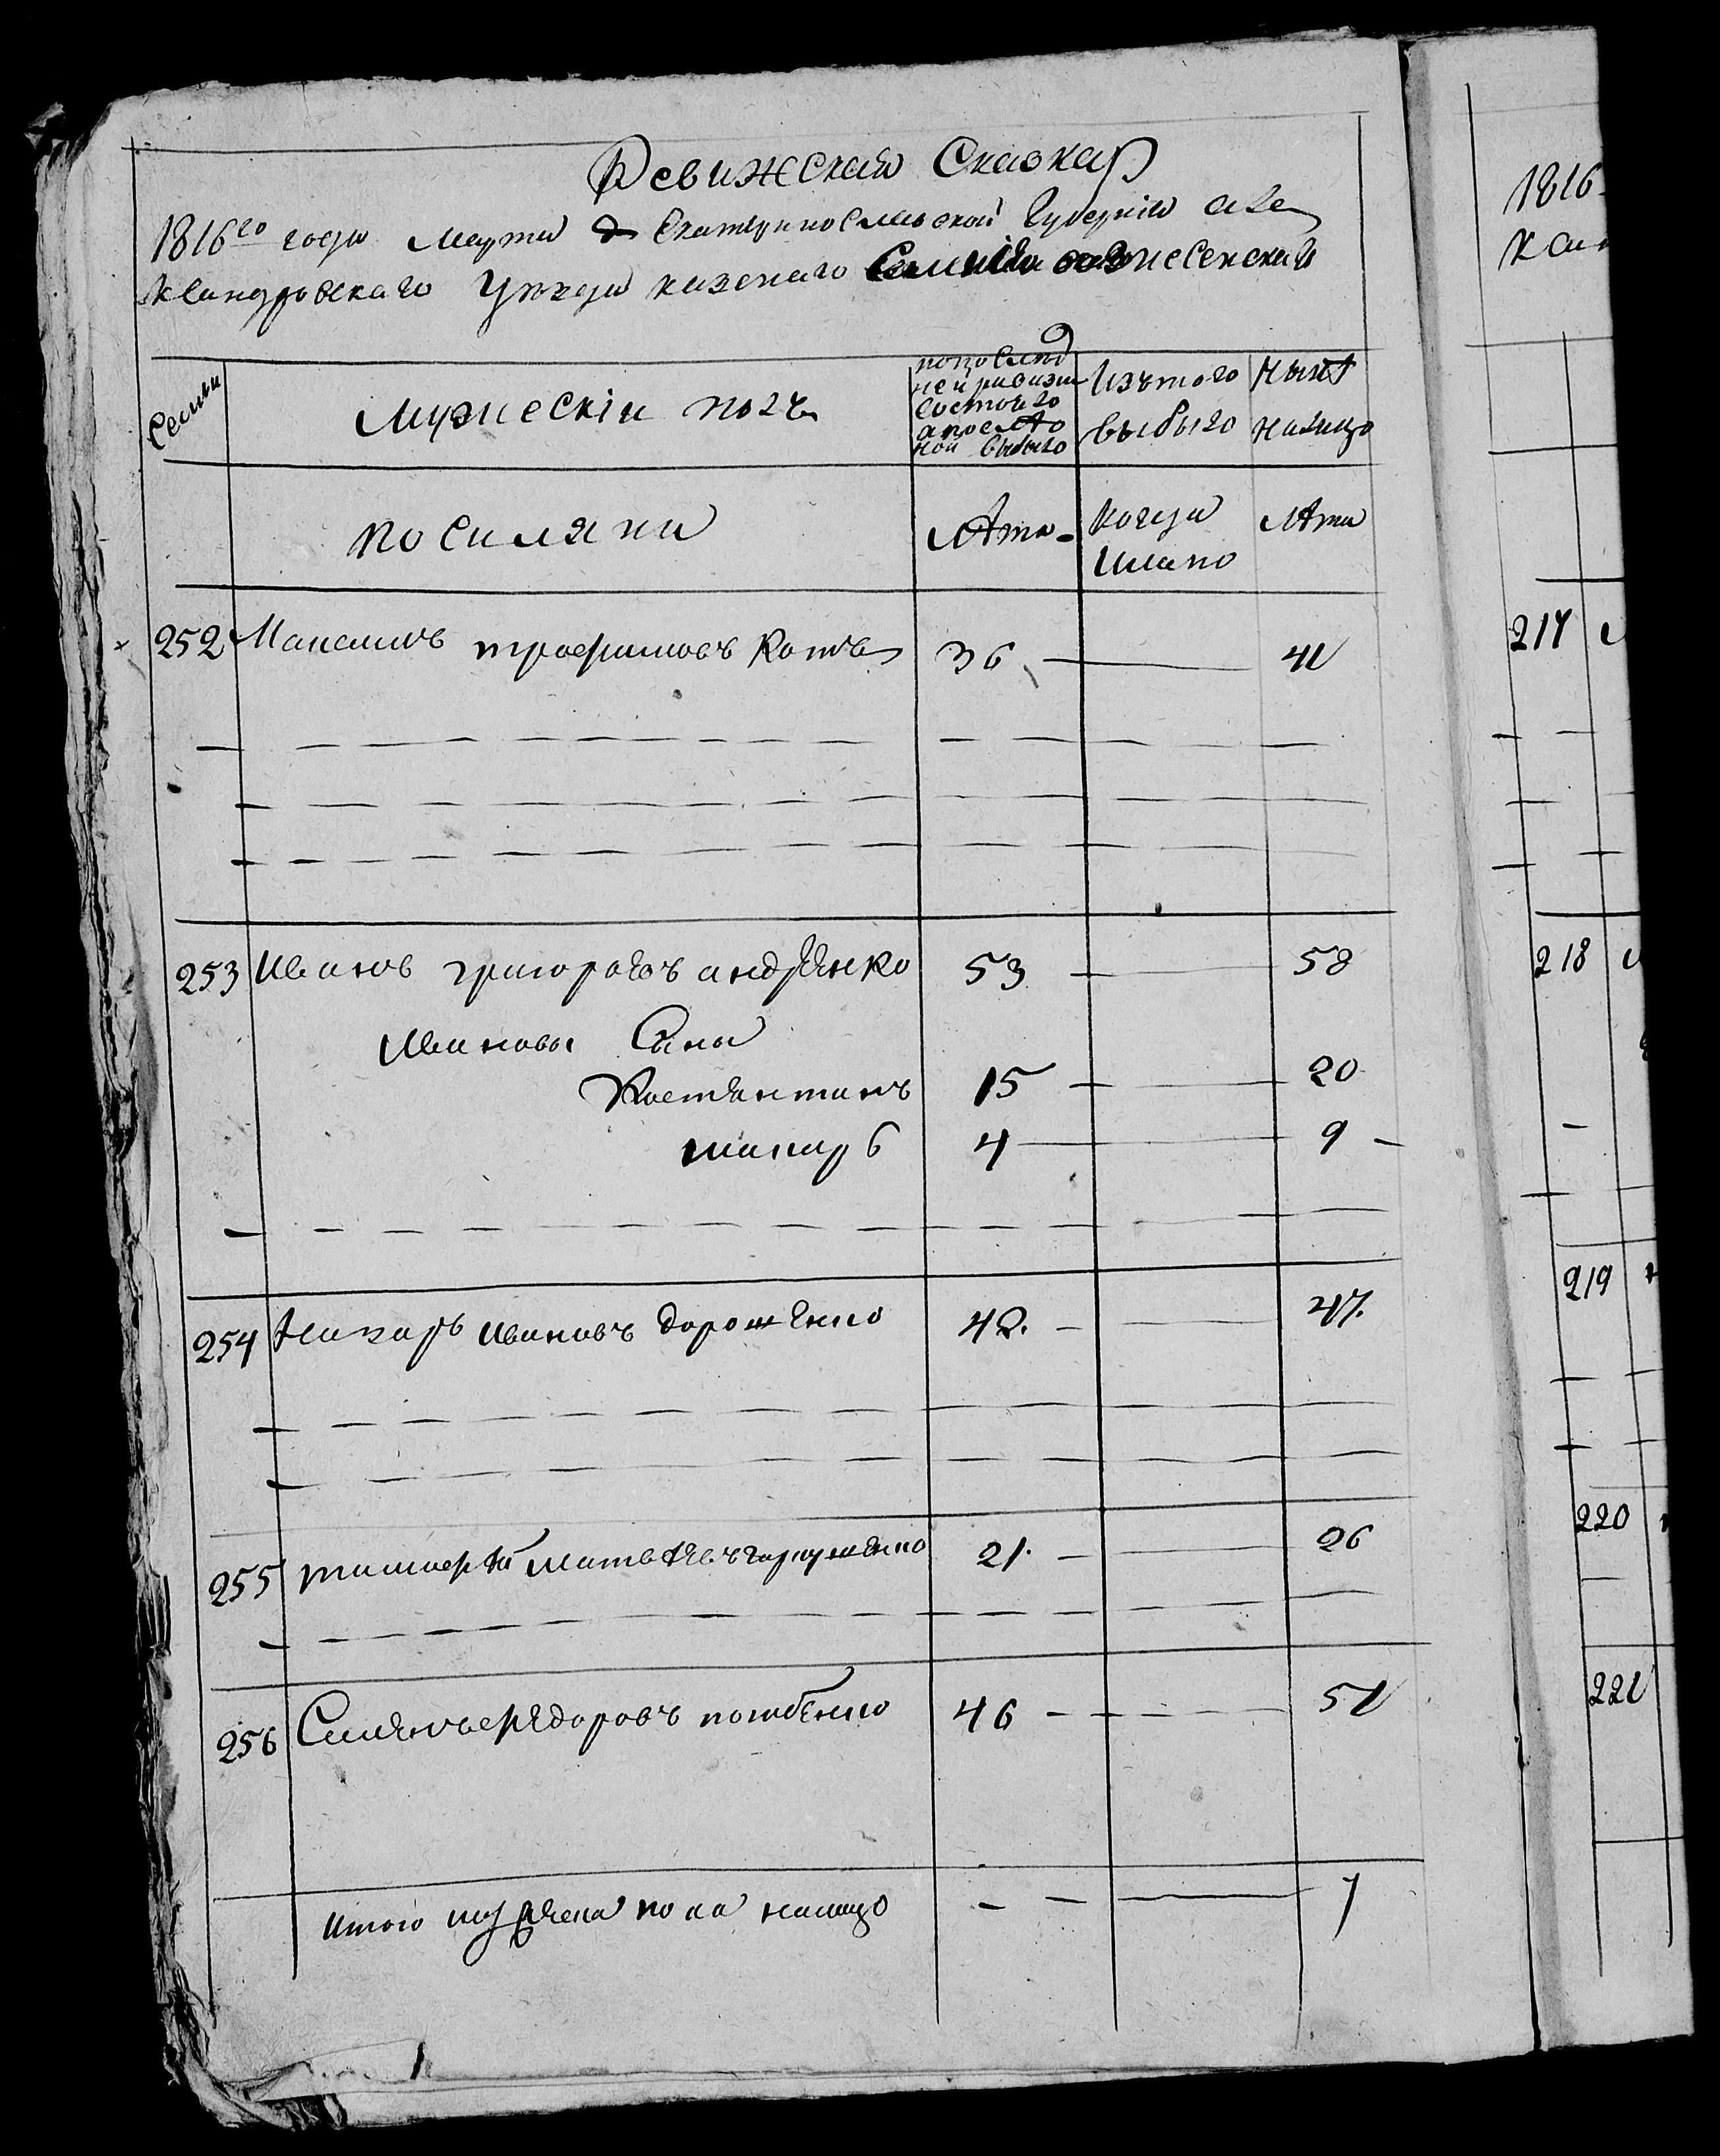 Ревижская Сказка
1816го года Марта Екатеринославской Губернии але
ксандровского Уезда казенаго Селения вознесенский
Семьи
Мужескій полъ
попослѣд
ней ревизии
состояло
апослѣтѣ
ной выбыло
Изътого
выбыло
Нынѣ
налицо
Поселяни
Лѣта
Когда
имано
Лѣта
252 Максимъ трофимовъ Котъ 36 41
253 Иванъ григоревъ андренко 53 58
Ивановы Сына
Костентинъ 15 20
макаръ 4 9
254 Назаръ Ивановъ дорошенко 42. 47.
255 тимофѣй матвѣевъ 21. 26
256 Семенъ федоровъ 46 51
Итого мужеска пола налицо 7
1816
217
218
219
220
221